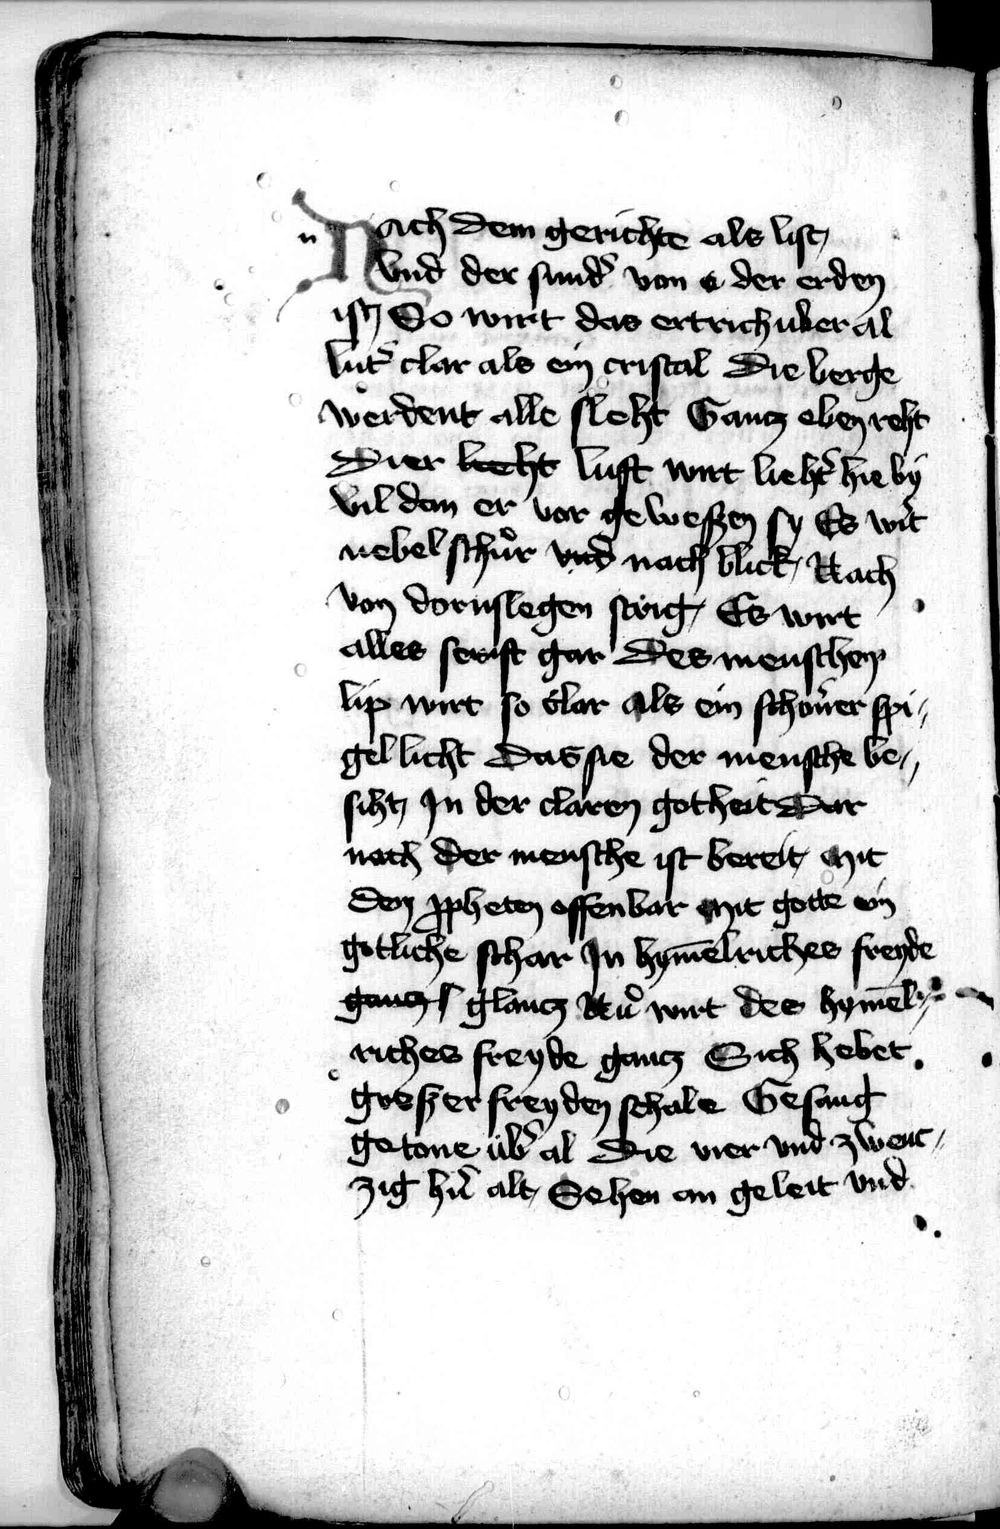 Nach dem gerichte als list
Vnd der sund᷑ von e der erden
ist So wirt das ertrich uber al
lut᷑ clar als ein cristal Die berge
werdent alle sleht Gancz eben reht
Dier lieht luft wirt lieht᷑ hie by
vil dan er vor geweszen sy Es wirt
nebel schůr vnd nach blick Nach
von dornslegen Es wirt
alles senft gar Des menschen
lip wirt so clar Als ein schoner spi⸗
gel licht Das sie der mensche be⸗
siht In der claren gotheit Dar
noch der mensche ist bereit mit
den ppheten offenbar mit gotte ein
gotliche schar In hym̄elriches freyde
gancz glancz Nů wirt des hym̄el⸗
riches freyde gancz Sich hebet
groszer freyden schale Gesang
getone úb᷑ al Die vier vnd zwenc⸗
zig h᷑n alt Sehen an geleit vnd